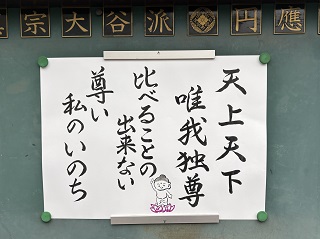 宗大谷派円應
天上天下
唯我独尊
比べることの
出来ない
尊い
私のいのち